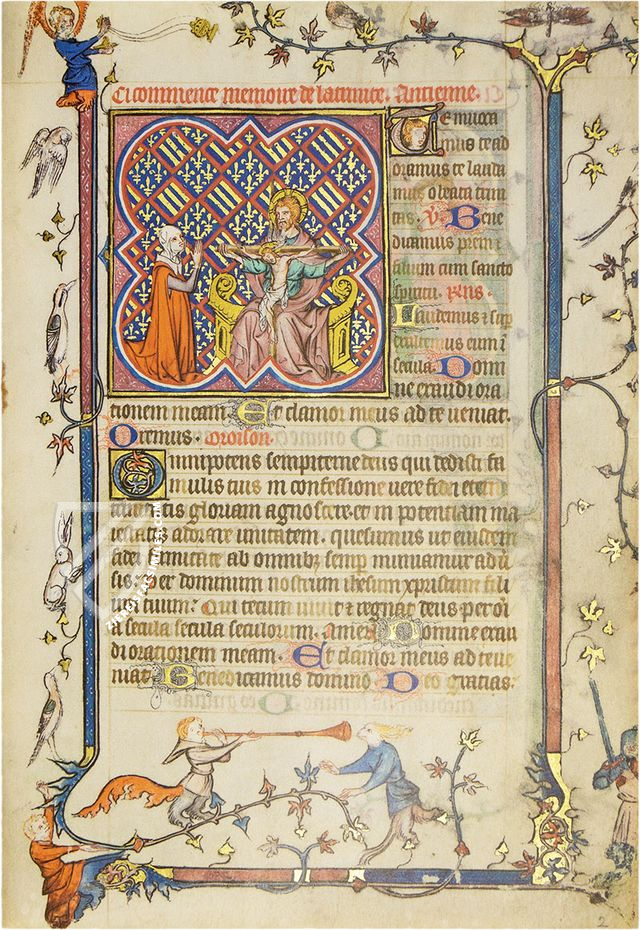 Ci commence memoire de la trinite. Antienne.
Te inuoca
mus te ad
oramus te lauda
mus o beata trini
tas. V. Bene
dicamus prem ⁊
filium cum sancto
spiritu. Rens.
Laudemus ⁊ sup
exaltemus eum ī
secula. Domi
ne exaudi ora
tionem meam. Et clamor meus ad te veniat.
Oremus. Oroison.
Omnipotens sempiterne deus qui dedisti fa
mulis tuis in confessione uere fidei eter
trinitatis gloriam agnoscere. et in potentiam ma
iestatis adorare unitatem. quesumus ut eiusdem
fidei firmitate ab omnibꝫ semp muniamur aduͥ
sis. Per dominum nostrum ihesum xpristum fili
um tuum. Qui tecum uiuit ⁊ regnat deus per oī
a secula secula seculorum. Amen. Domine exau
di orationem meam. Et clamor meus ad te ue
niat. Benedicamus domino. Deo gratias.
2